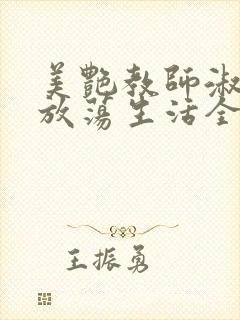 美艷教師淑
放蕩生活全
王振勇